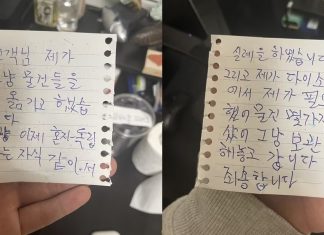 고객님 제가
물건들을
옮기고 했습
다
이제 혼자 독립
는 자식 같이..서
실례를 하였습니다
그리고 제가 다이소
에서 제가 필
몇가지
삿어 그냥 보관
해놓고 갑니다
죄송합니다